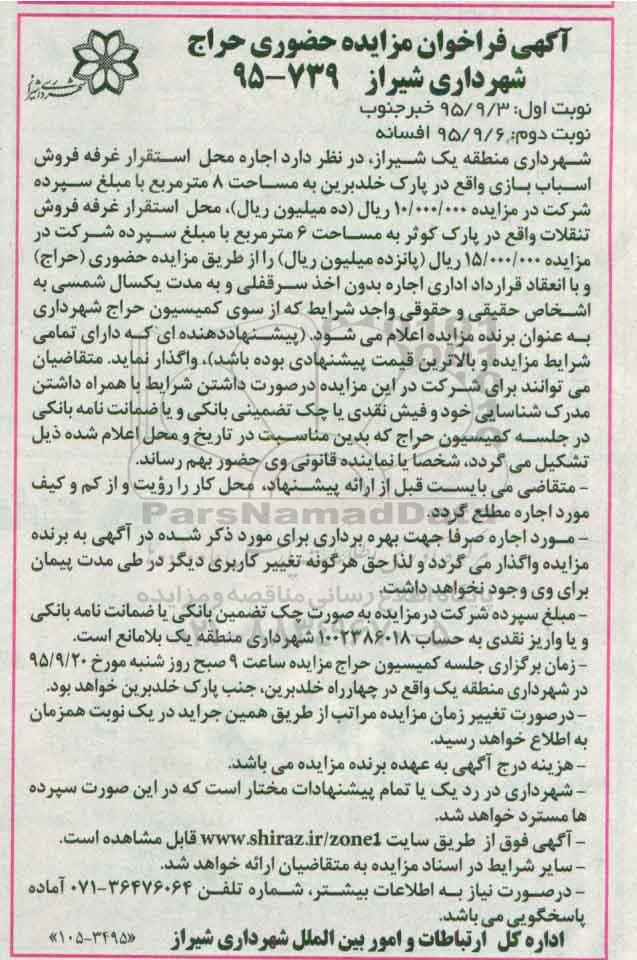 آگهی فراخوان مزایده حضوری حراج
شهرداری شیراز ۷۳۹-۹۵
شهرداری شیراز
نوبت اول: ۹۵/۹/۳ خبرجنوب
نوبت دوم: ۹۵/۹/۶ افسانه
شهرداری منطقه یک شیراز، در نظر دارد اجاره محل استقرار غرفه فروش
اسباب بازی واقع در پارک خلدبرین به مساحت ۸ مترمربع با مبلغ سپرده
شرکت در مزایده ۱۰/۰۰۰/۰۰۰ ریال (ده میلیون ریال)، محل استقرار غرفه فروش
تنقلات واقع در پارک کوثر به مساحت ۶ مترمربع با مبلغ سپرده شرکت در
مزایده ۱۵/۰۰۰/۰۰۰ ریال (پانزده میلیون ریال) را از طریق مزایده حضوری (حراج)
و با انعقاد قرارداد اداری اجاره بدون اخذ سرقفلی و به مدت یکسال شمسی به
اشخاص حقیقی و حقوقی واجد شرایط که از سوی کمیسیون حراج شهرداری
به عنوان برنده مزایده اعلام می شود. (پیشنهاددهنده ای که دارای تمامی
شرایط مزایده و بالاترین قیمت پیشنهادی بوده باشد)، واگذار نماید. متقاضیان
می توانند برای شرکت در این مزایده درصورت داشتن شرایط با همراه داشتن
مدرک شناسایی خود و فیش نقدی یا چک تضمینی بانکی و یا ضمانت نامه بانکی
در جلسه کمیسیون حراج که بدین مناسبت در تاریخ و محل اعلام شده ذیل
تشکیل می گردد، شخصا یا نماینده قانونی وی حضور بهم رساند.
- متقاضی می بایست قبل از ارائه پیشنهاد، محل کار را رؤیت و از کم و کیف
مورد اجاره مطلع گردد.
- مورد اجاره صرفا جهت بهره برداری برای مورد ذکر شده در آگهی به برنده
مزایده واگذار می گردد و لذا حق هرگونه تغییر کاربری دیگر در طی مدت پیمان
برای وی وجود نخواهد داشت.
- مبلغ سپرده شرکت درمزایده به صورت چک تضمین بانکی یا ضمانت نامه بانکی
و یا واریز نقدی به حساب ۱۰۰۲۳۸۶۰۱۸ شهرداری منطقه یک بلامانع است.
- زمان برگزاری جلسه کمیسیون حراج مزایده ساعت ۹ صبح روز شنبه مورخ ۹۵/۹/۲۰
در شهرداری منطقه یک واقع در چهارراه خلدبرین، جنب پارک خلدبرین خواهد بود.
- درصورت تغییر زمان مزایده مراتب از طریق همین جراید در یک نوبت همزمان
به اطلاع خواهد رسید.
- هزینه درج آگهی به عهده برنده مزایده می باشد.
- شهرداری در رد یک یا تمام پیشنهادات مختار است که در این صورت سپرده
ها مسترد خواهد شد.
- آگهی فوق از طریق سایت www.shiraz.ir/zone1 قابل مشاهده است.
- سایر شرایط در اسناد مزایده به متقاضیان ارائه خواهد شد.
- درصورت نیاز به اطلاعات بیشتر، شماره تلفن ۳۶۴۷۶۰۶۴-۰۷۱ آماده
پاسخگویی می باشد.
اداره کل ارتباطات و امور بین الملل شهرداری شیراز «۱۰۵-۳۴۹۵»
ParsNamadData
پایگاه اطلاع رسانی مناقصه و مزایده